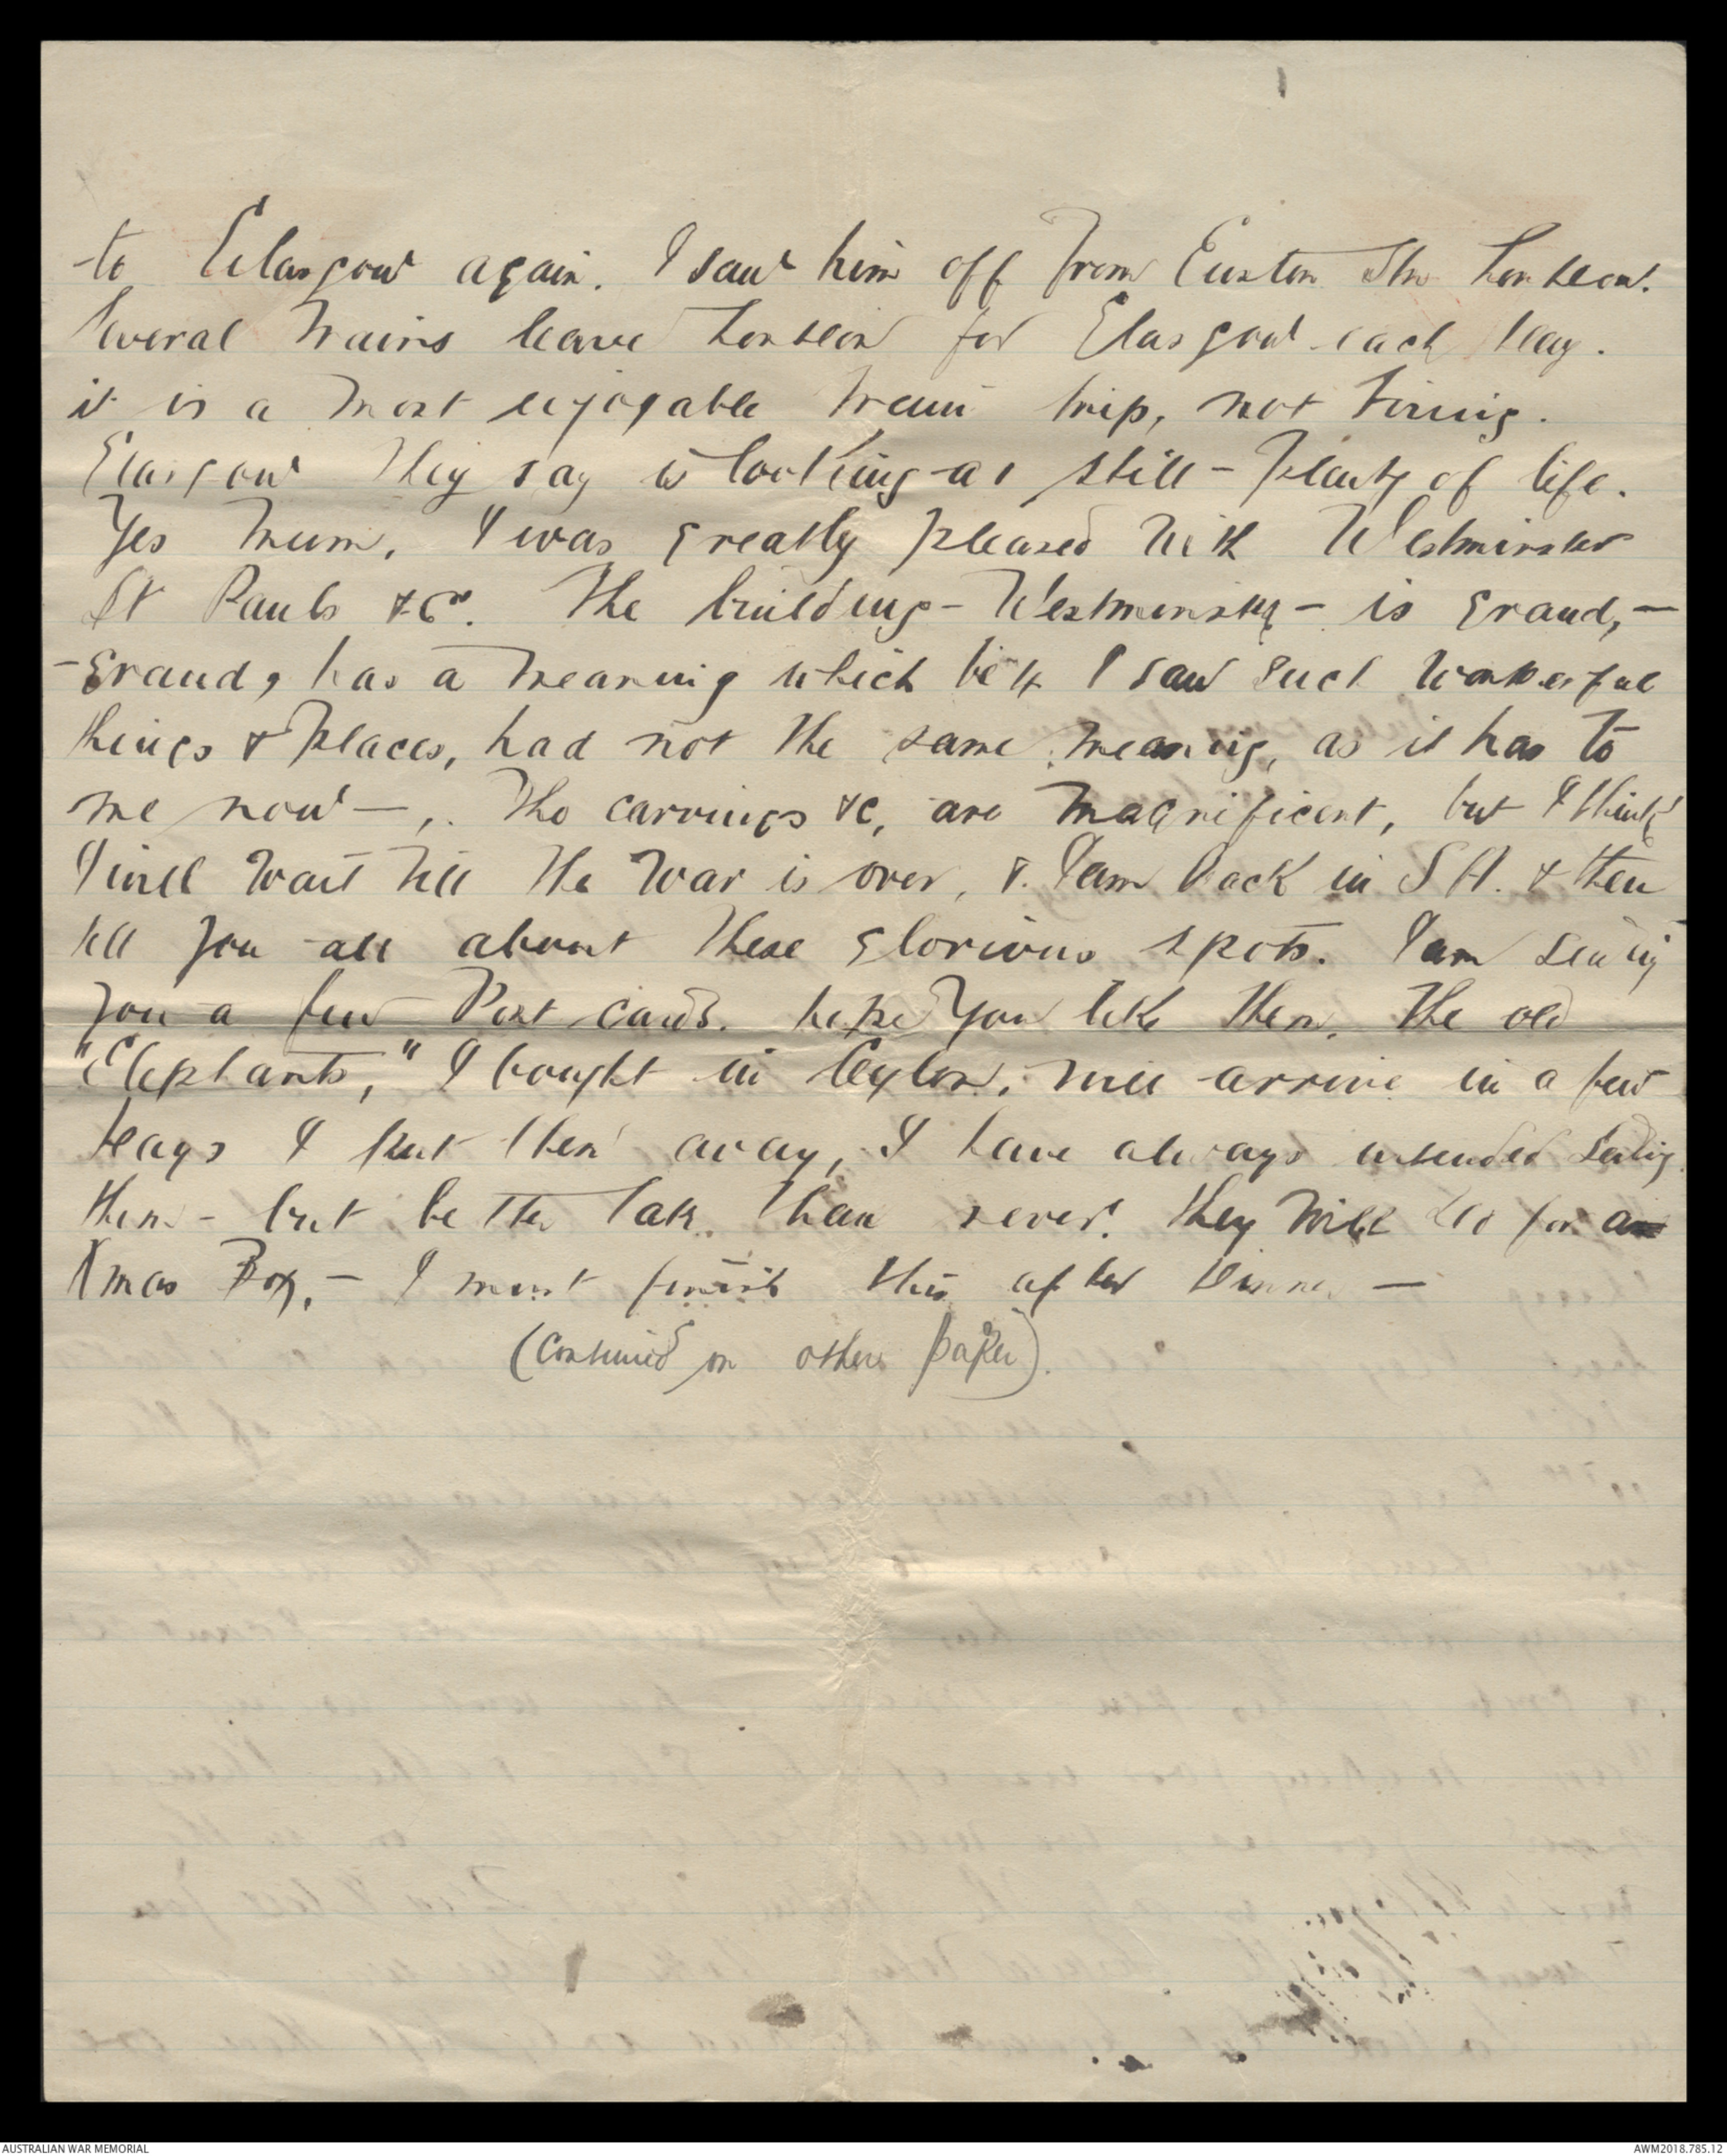 to Glasgow again. I saw him off from Euston Stn London.
Several trains leave London for Glasgow each day.
it is a most enjoyable train trip, not tiring.
Glasgow they say is looking as still - plenty of life.
Yes Mum, I was greatly pleased with Westminster
St Pauls &c. The building - Westminster - is grand, -
- grand, has a meaning which before I saw such wonderful
things & places, had not the same meaning, as it has to
me now - ,. The carvings &c, are magnificent, but I think
I will wait till the war is over, & I am back in S A. & then
tell you all about these glorious spots. I am sending
you a few Post cards. hope you like them. The old
"Elephants," I bought in Ceylon, will arrive in a few
days I put them away, I have always intended sending
them - but better late than never. they will do for a
Xmas Box, - I must finish this after dinner -
(Continued on other paper).
AUSTRALIAN WAR MEMORIAL
AWM2018.785.12